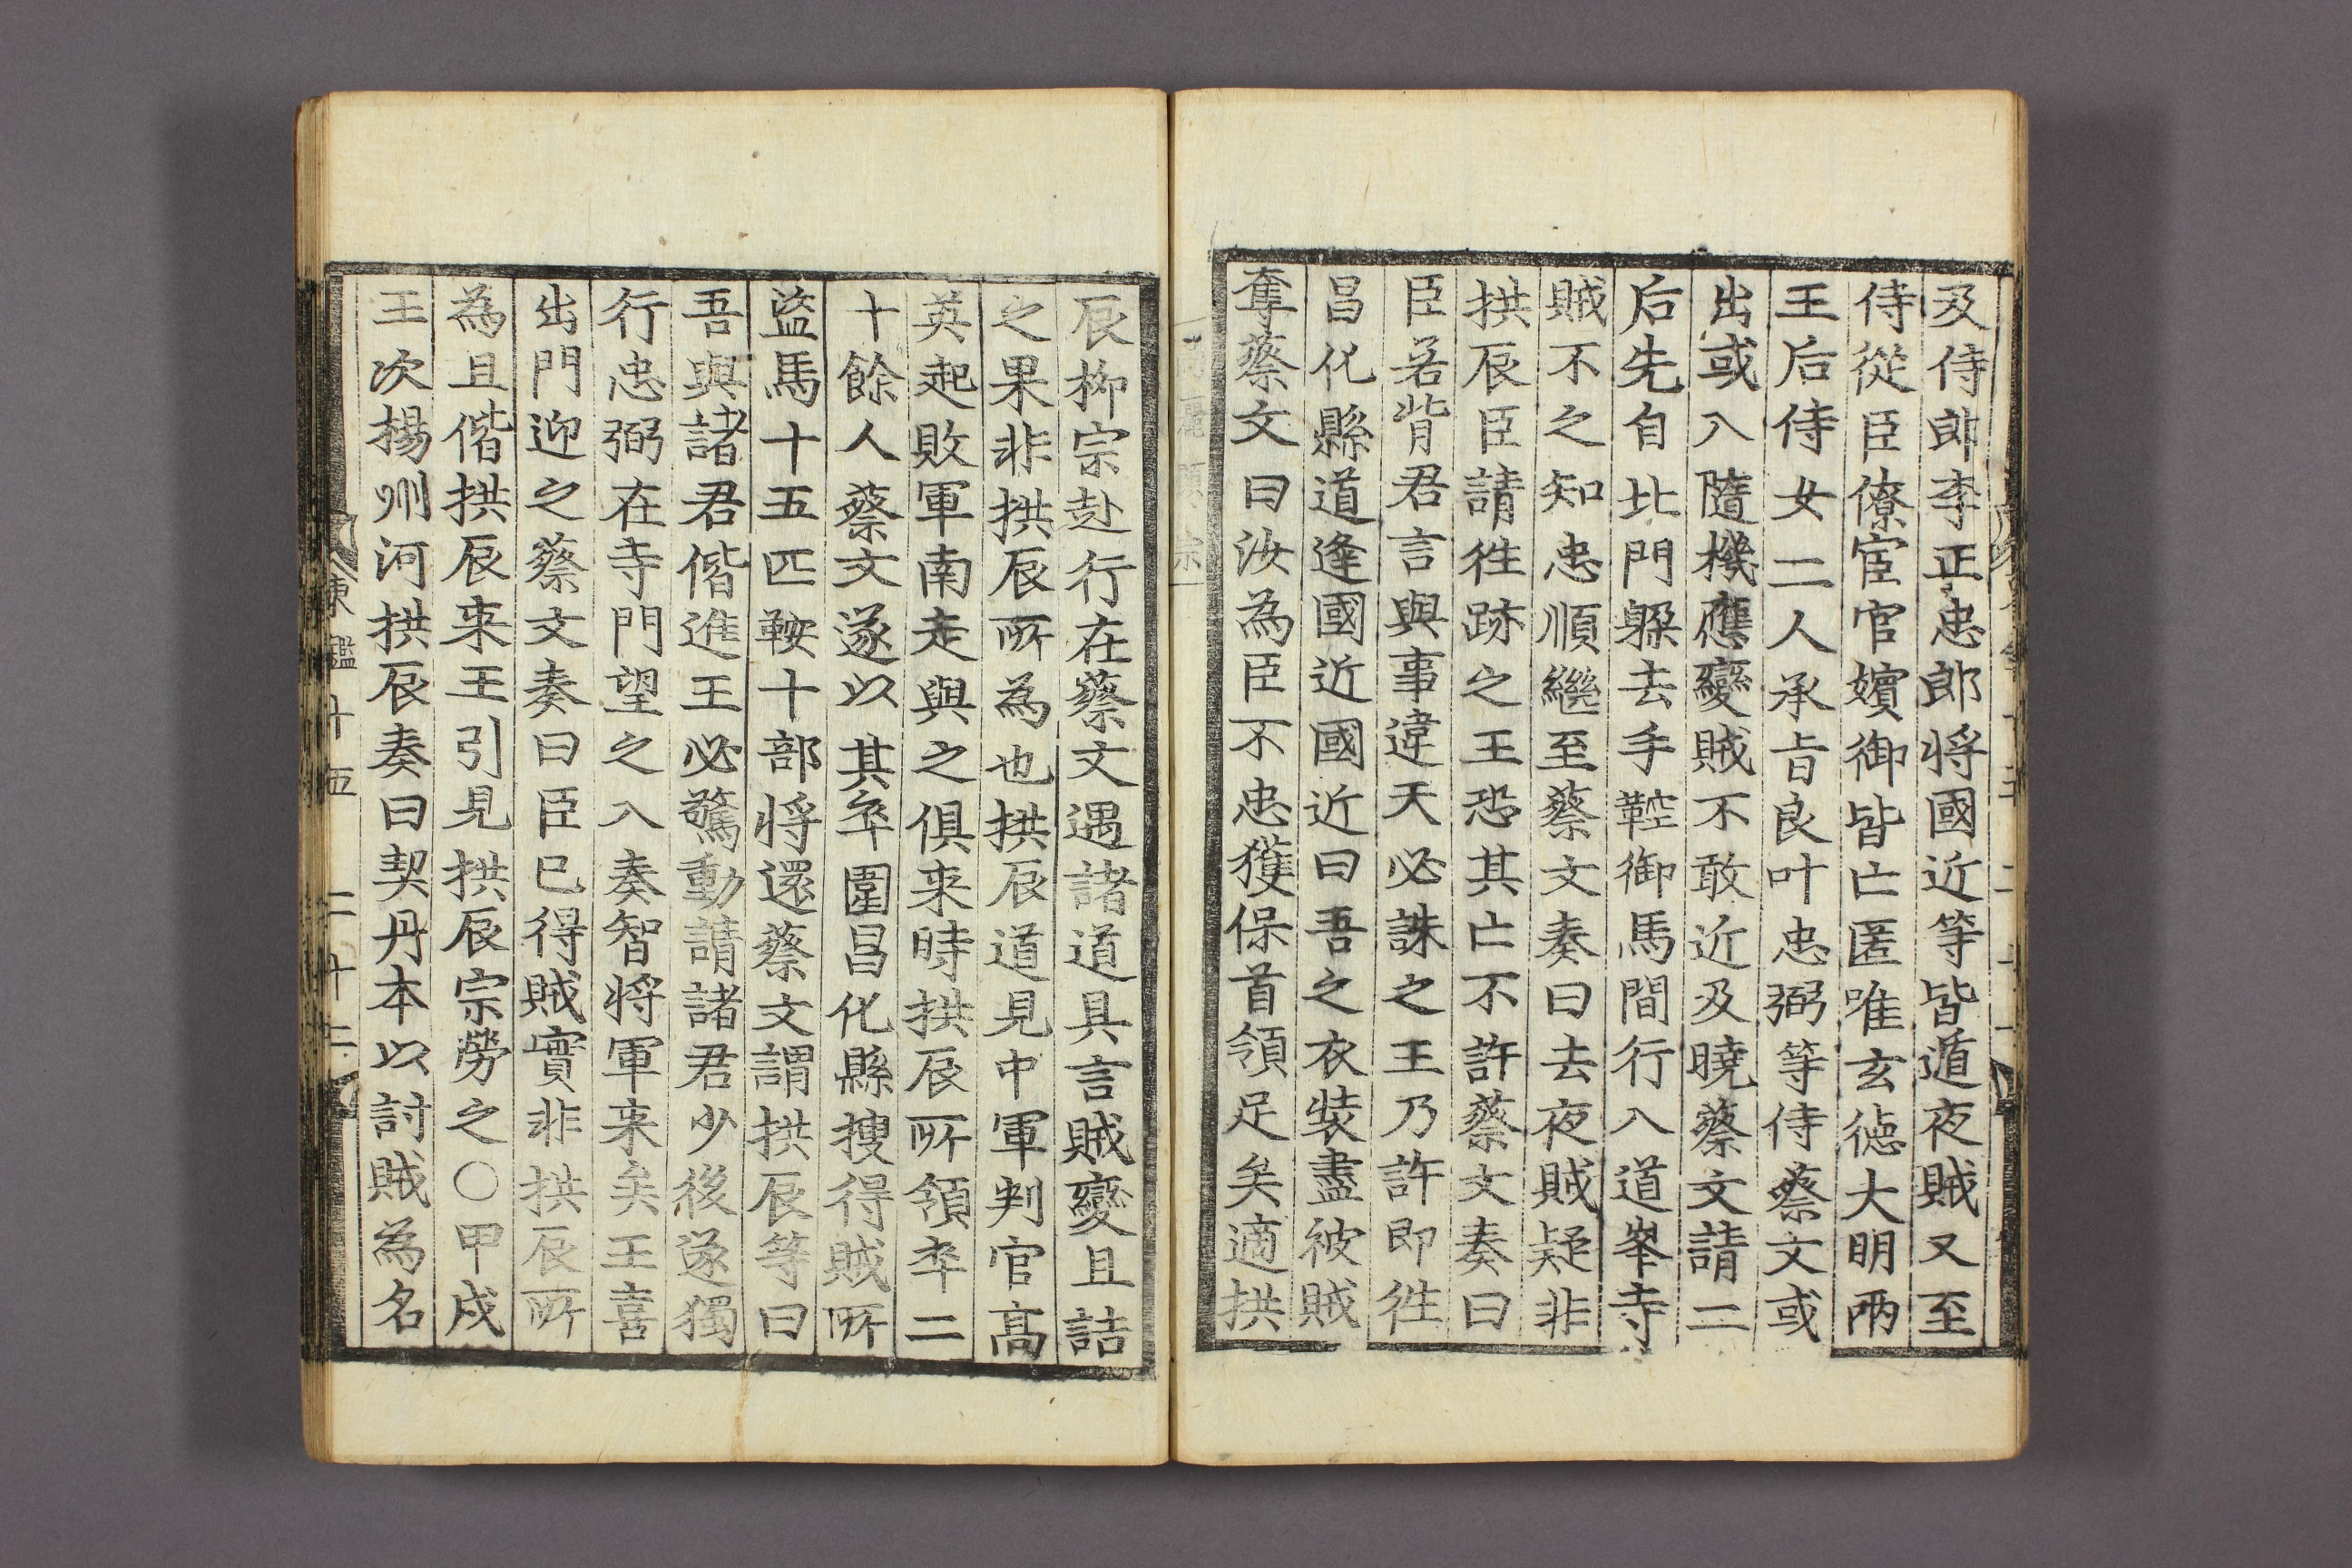 及侍郎李正忠郎将國近等皆遁夜賊又至
侍從臣僚宦官嬪御皆亡匿唯玄德大明兩
王后侍女二人承旨良叶忠弼等侍蔡文或
出或入隨機應變賊不敢近及曉蔡文請二
后先自北門躱去手鞚御馬間行入道峯寺
賊不之知忠順繼至蔡文奏曰去夜賊疑非
拱辰臣請徃跡之王恐其亡不許蔡文奏曰
臣若背君言與事違天必誅之王乃許即徃
昌化縣道逢國近國近曰吾之衣裝盡彼賊
奪蔡文曰汝為臣不忠獲保首領足矣適拱
辰柳宗赴行在蔡文遇諸道具言賊變且詰
之果非拱辰所為也拱辰道見中軍判官高
英起敗軍南走與之俱来時拱辰所領卒二
十餘人蔡文遂以其卒圍昌化縣搜得賊所
盜馬十五匹鞍十部将還蔡文謂拱辰等曰
吾與諸君偕進王必驚動請諸君少後遂獨
行忠弼在寺門望之入奏智将軍来矣王喜
出門迎之蔡文奏曰臣已得賊實非拱辰所
為且偕拱辰来王引見拱辰宗勞之○甲戌
王次楊州河拱辰奏曰契丹本以討賊為名
東鑑十五 二十二